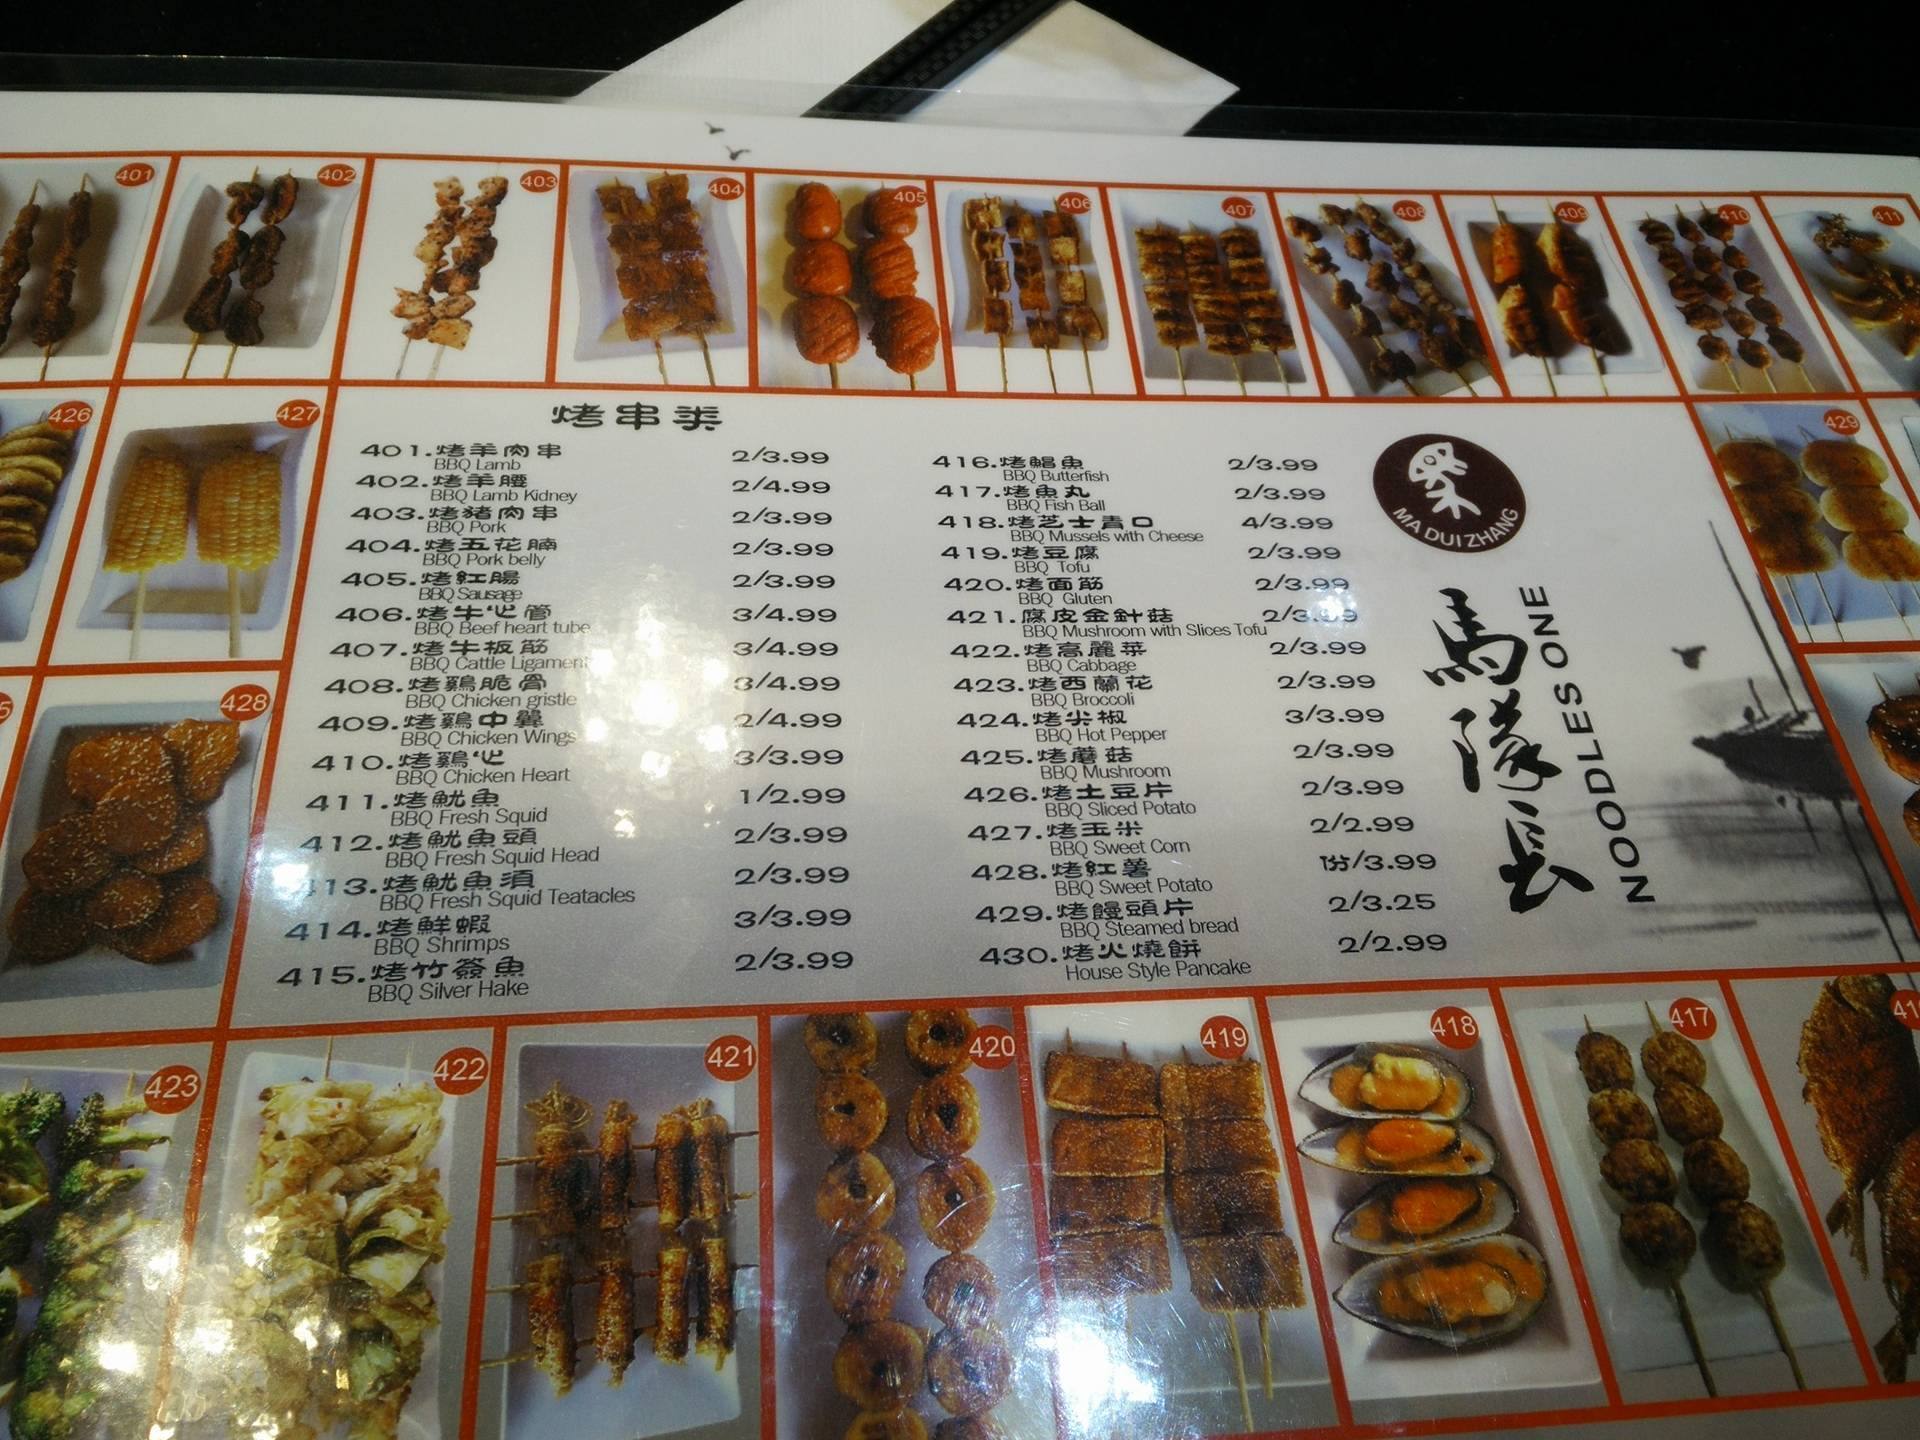 401
402
403
404
405
406
407
408
409
410
411
426
427
429
428
烤串类
401.烤羊肉串 2/3.99
BBQ Lamb
402.烤羊腰 2/4.99
BBQ Lamb Kidney
403.烤猪肉串 2/3.99
BBQ Pork
404.烤五花腩 2/3.99
BBQ Pork belly
405.烤紅腸 2/3.99
BBQ Sausage
406.烤牛心管 3/4.99
BBQ Beef heart tube
407.烤牛板筋 3/4.99
BBQ Cattle Ligament
408.烤鷄脆骨 3/4.99
BBQ Chicken gristle
409.烤鷄中翼 2/4.99
BBQ Chicken Wings
410.烤鷄心 3/3.99
BBQ Chicken Heart
411.烤魷魚 1/2.99
BBQ Fresh Squid
412.烤魷魚頭 2/3.99
BBQ Fresh Squid Head
413.烤魷魚須 2/3.99
BBQ Fresh Squid Teatacles
414.烤鮮蝦 3/3.99
BBQ Shrimps
415.烤竹簽魚 2/3.99
BBQ Silver Hake
416.烤鯧魚 2/3.99
BBQ Butterfish
417.烤魚丸 2/3.99
BBQ Fish Ball
418.烤芝士青口 4/3.99
BBQ Mussels with Cheese
419.烤豆腐 2/3.99
BBQ Tofu
420.烤面筋 2/3.99
BBQ Gluten
421.腐皮金針菇 2/3.99
BBQ Mushroom with Slices Tofu
422.烤高麗菜 2/3.99
BBQ Cabbage
423.烤西蘭花 2/3.99
BBQ Broccoli
424.烤尖椒 3/3.99
BBQ Hot Pepper
425.烤蘑菇 2/3.99
BBQ Mushroom
426.烤土豆片 2/3.99
BBQ Sliced Potato
427.烤玉米 2/2.99
BBQ Sweet Corn
428.烤紅薯 1份/3.99
BBQ Sweet Potato
429.烤饅頭片 2/3.25
BBQ Steamed bread
430.烤火燒餅 2/2.99
House Style Pancake
MA DUI ZHANG
馬隊長
NOODLES ONE
423
422
421
420
419
418
417